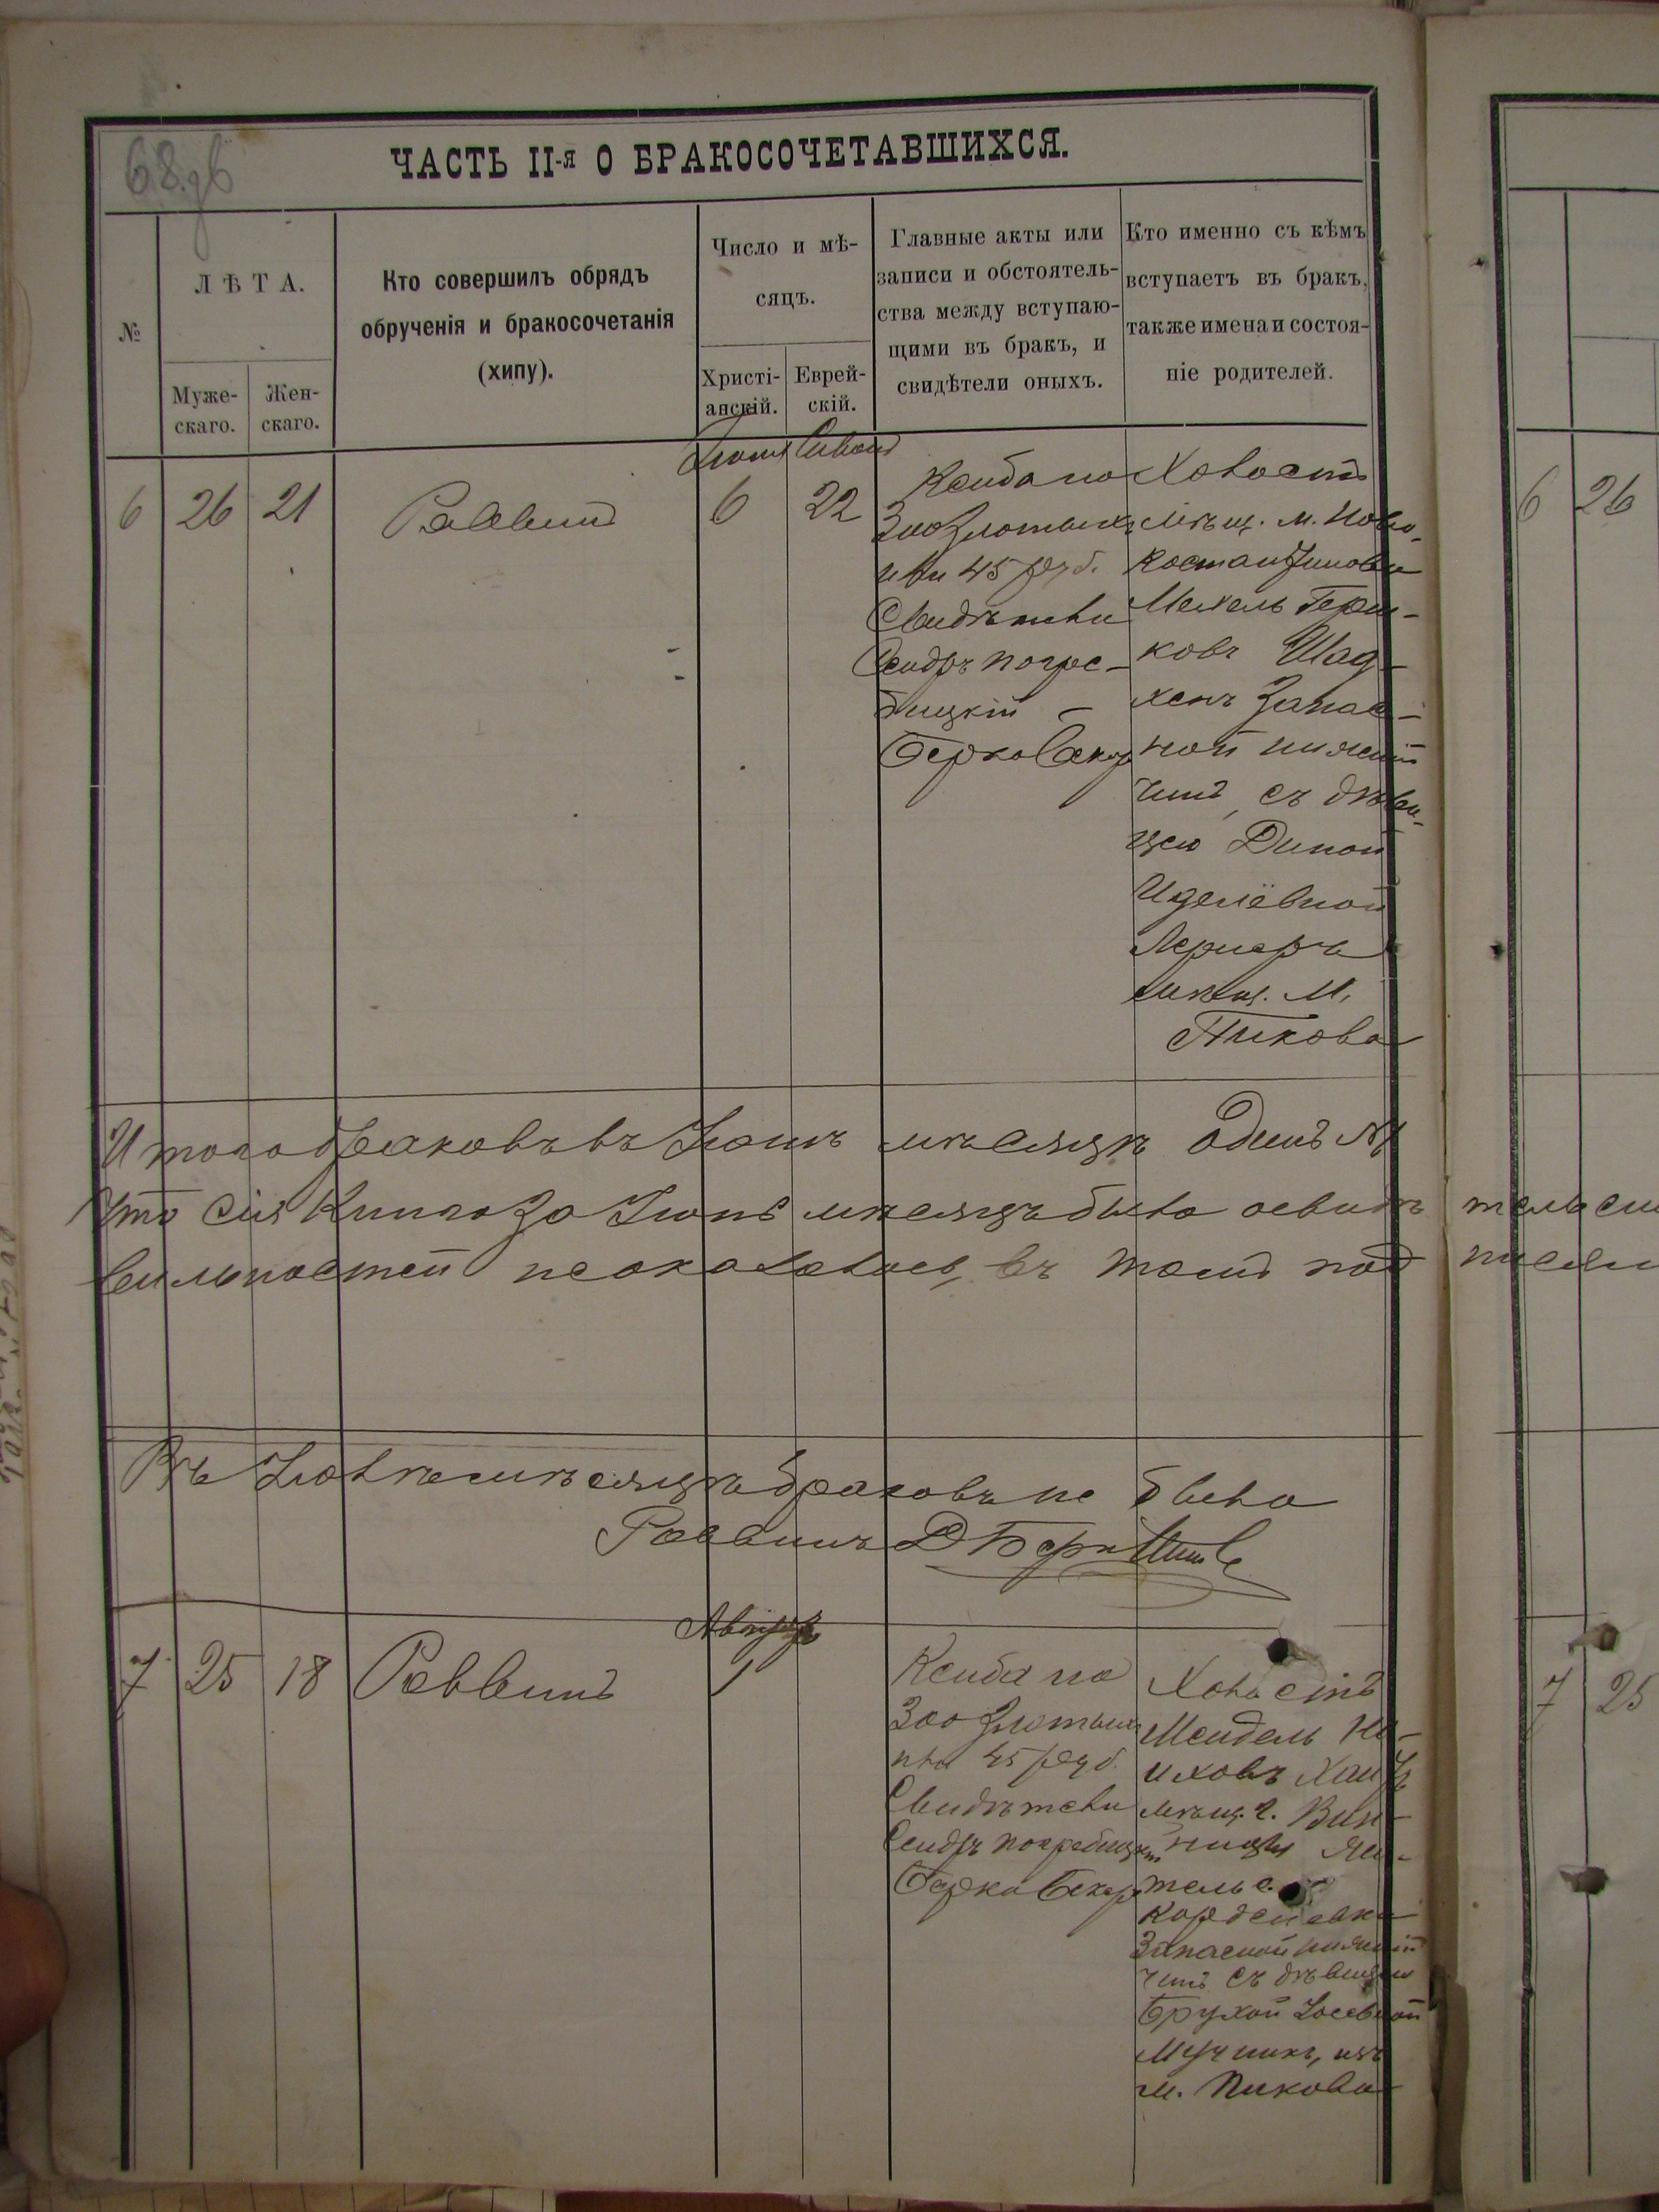 68.дв
ЧАСТЬ II-я О БРАКОСОЧЕТАВШИХСЯ.
№
ЛѢТА.
Муже-
скаго.
Жен-
скаго.
Кто совершилъ обрядъ
обрученія и бракосочетанія
(хипу).
Число и мѣ-
сяцъ.
Христі-
анскій.
Еврей-
скій.
Главные акты или
записи и обстоятель-
ства между вступаю-
щими въ бракъ, и
свидѣтели оныхъ.
Кто именно съ кѣмъ
вступаетъ въ бракъ,
также имена и состоя-
ніе родителей.
Іюня Сивонъ
6 26 21 Раввинъ 6 22
Ксиба по
300 злотыхъ
или 45 руб.
Свидѣтели
Сендръ Погре-
бицкій
Берко Бекеръ
Холостъ
мѣщ. м. Ново-
константинова
Мехель Герш-
ковъ Шад-
хенъ Запас-
ной нижній
чинъ, съ дѣви-
цею Диной
Иделёвной
Лернеръ
мѣщ. м.
Пикова
Итого браковъ въ Іюнѣ мѣсяцѣ одинъ №1
Что сія Книга за Іюнь мѣсяцъ была освидѣ
вильностей не оказалось, въ томъ под
Въ Іюлѣ мѣсяцѣ браковъ не было
Раввинъ Д
Августъ
7 25 18 Раввинъ 1
Ксиба на
300 злотыхъ
или 45 руб.
Свидѣтели
Сендръ Погребицкій
Берко Бекеръ
Холостъ
Мендель Но-
иховъ
мѣщ. г. Вин-
ницы жи-
тель с.
Корделевка
Запасной нижній
чинъ съ дѣвицею
Брухой Іосевной
Мучникъ, изъ
м. Пикова
6 26
тельс
писял
7 25